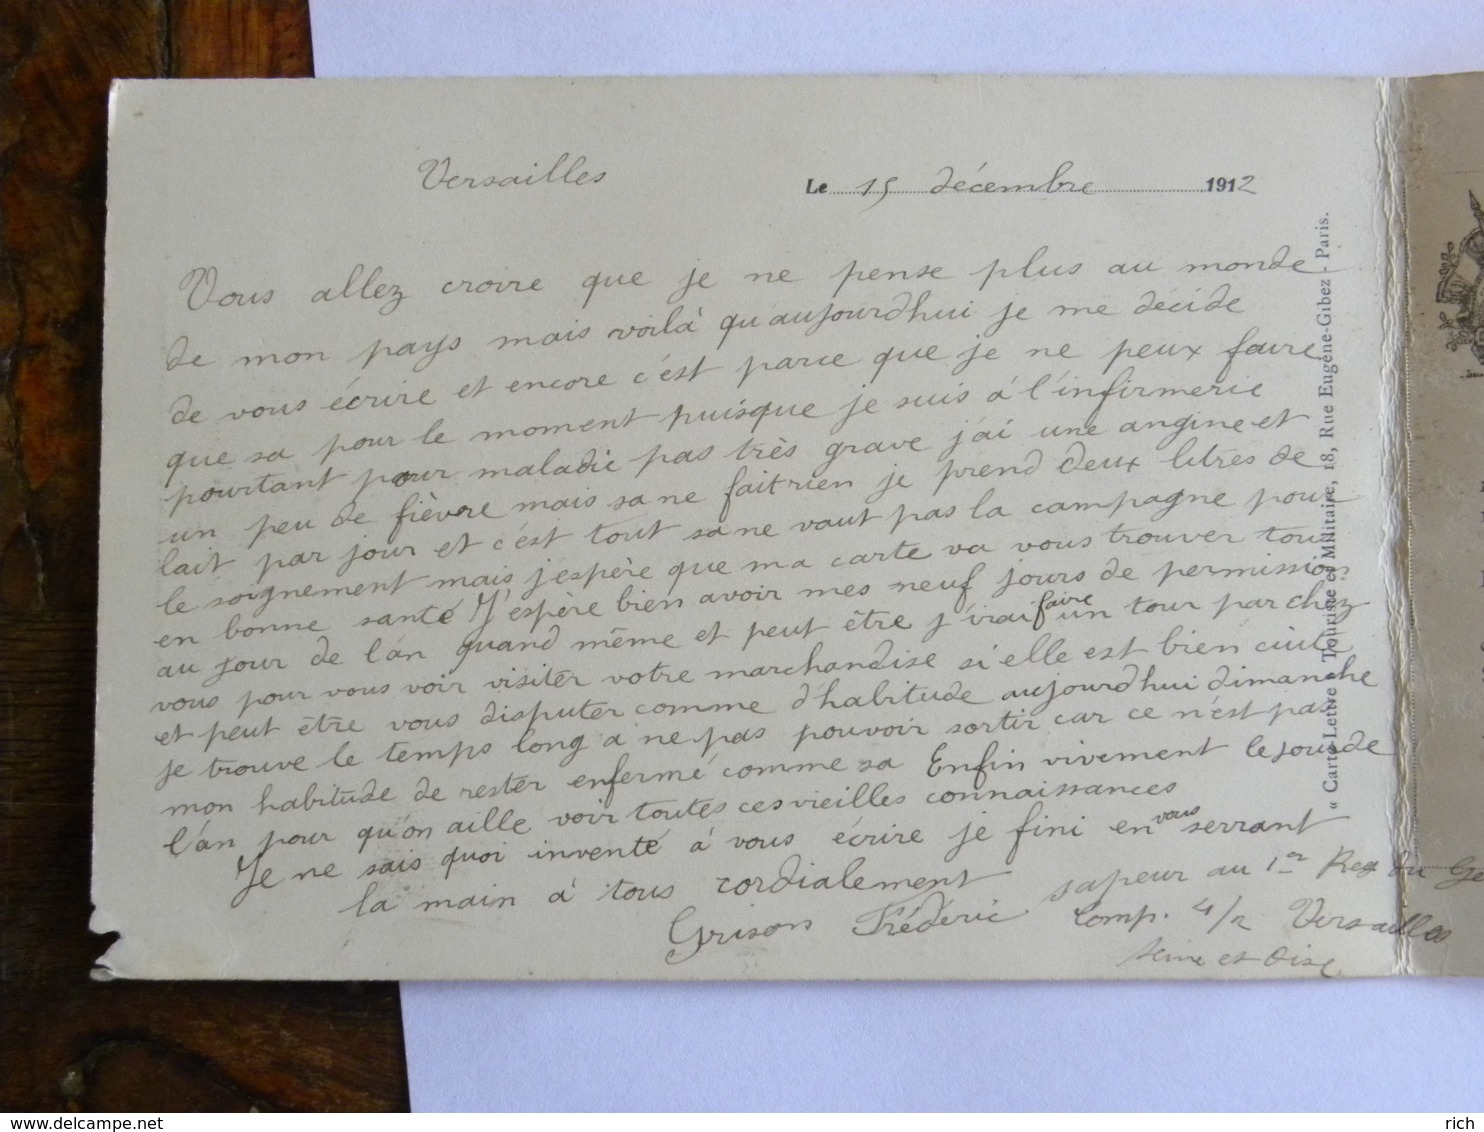 Versailles Le 15 décembre 1912
Vous allez croire que je ne pense plus au monde
de mon pays mais voilà qu'aujourdhui je me décide
de vous écrire et encore c'ést parce que je ne peux faire
que sa pour le moment puisque je suis á l'infirmerie
pourtant pour maladie pas très grave j'ai une angine et
un peu de fièvre mais sa ne fait rien je prend deux litres de
lait par jour et c'ést tout sa ne vaut pas la campagne pour
le soignement mais j'espère que ma carte va vous trouver tous
en bonne santé J'espère bien avoir mes neuf jours de permission
au jour de l'án quand même et peut être j'irai faire un tour par chez
vous pour vous voir visiter votre marchandise si elle est bien cuite
et peut être vous disputer comme d'habitude aujourdhui dimanche
je trouve le temps long a ne pas pouvoir sortir car ce n'est pas
mon habitude de rester enfermé comme sa Enfin vivement le jour de
l'án pour qu'on aille voir toutes ces vieilles connaissances
Je ne sais quoi inventé à vous écrire je fini en vous serrant
la main à tous cordialement
Grison Fréderic sapeur au 1er Reg du Ge
Comp. 4/2 Versailles
Seine et Oise
" Carte-Lettre " Touriste et Militaire, 18, Rue Eugène-Gibez - Paris.
delcampe.net
rich